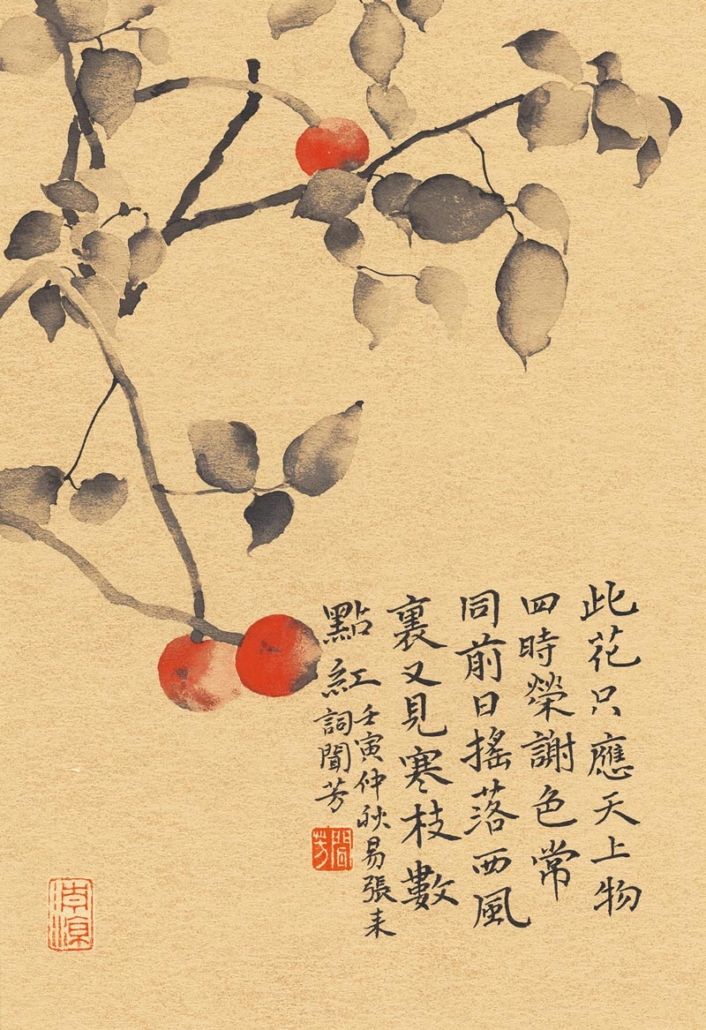 此花只應天上物
四時榮謝色常
同前日搖落西風
裏又見寒枝數
點紅
壬寅仲秋易張耒
詞聞芳
聞芳